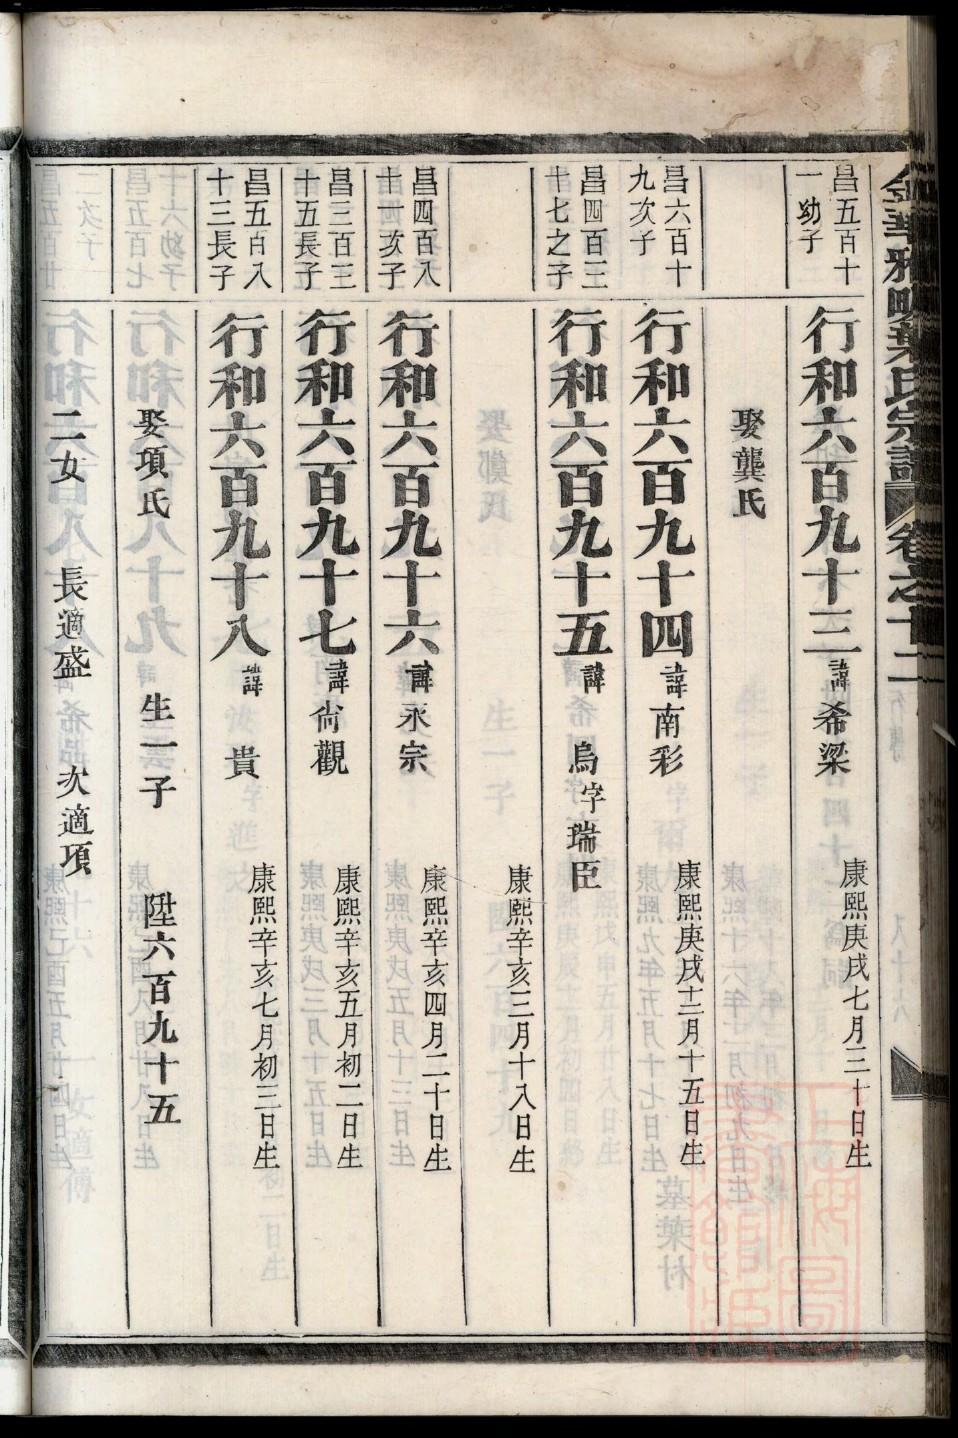 葉氏宗譜 卷之十二
昌五百十
一幼子
行和六百九十三 諱希梁
康熙庚戌七月三十日生
娶龔氏
昌六百十
九次子
行和六百九十四 諱南彩
康熙庚戌十二月十五日生
昌四百三
十七之子
行和六百九十五 諱烏字瑞臣
康熙辛亥三月十八日生
昌四百八
十一次子
行和六百九十六 諱永宗
康熙辛亥四月二十日生
昌三百三
十五長子
行和六百九十七 諱尙觀
康熙辛亥五月初二日生
昌五百八
十三長子
行和六百九十八 諱貴
康熙辛亥七月初三日生
娶項氏 生一子 陞六百九十五
二女 長適盛 次適項